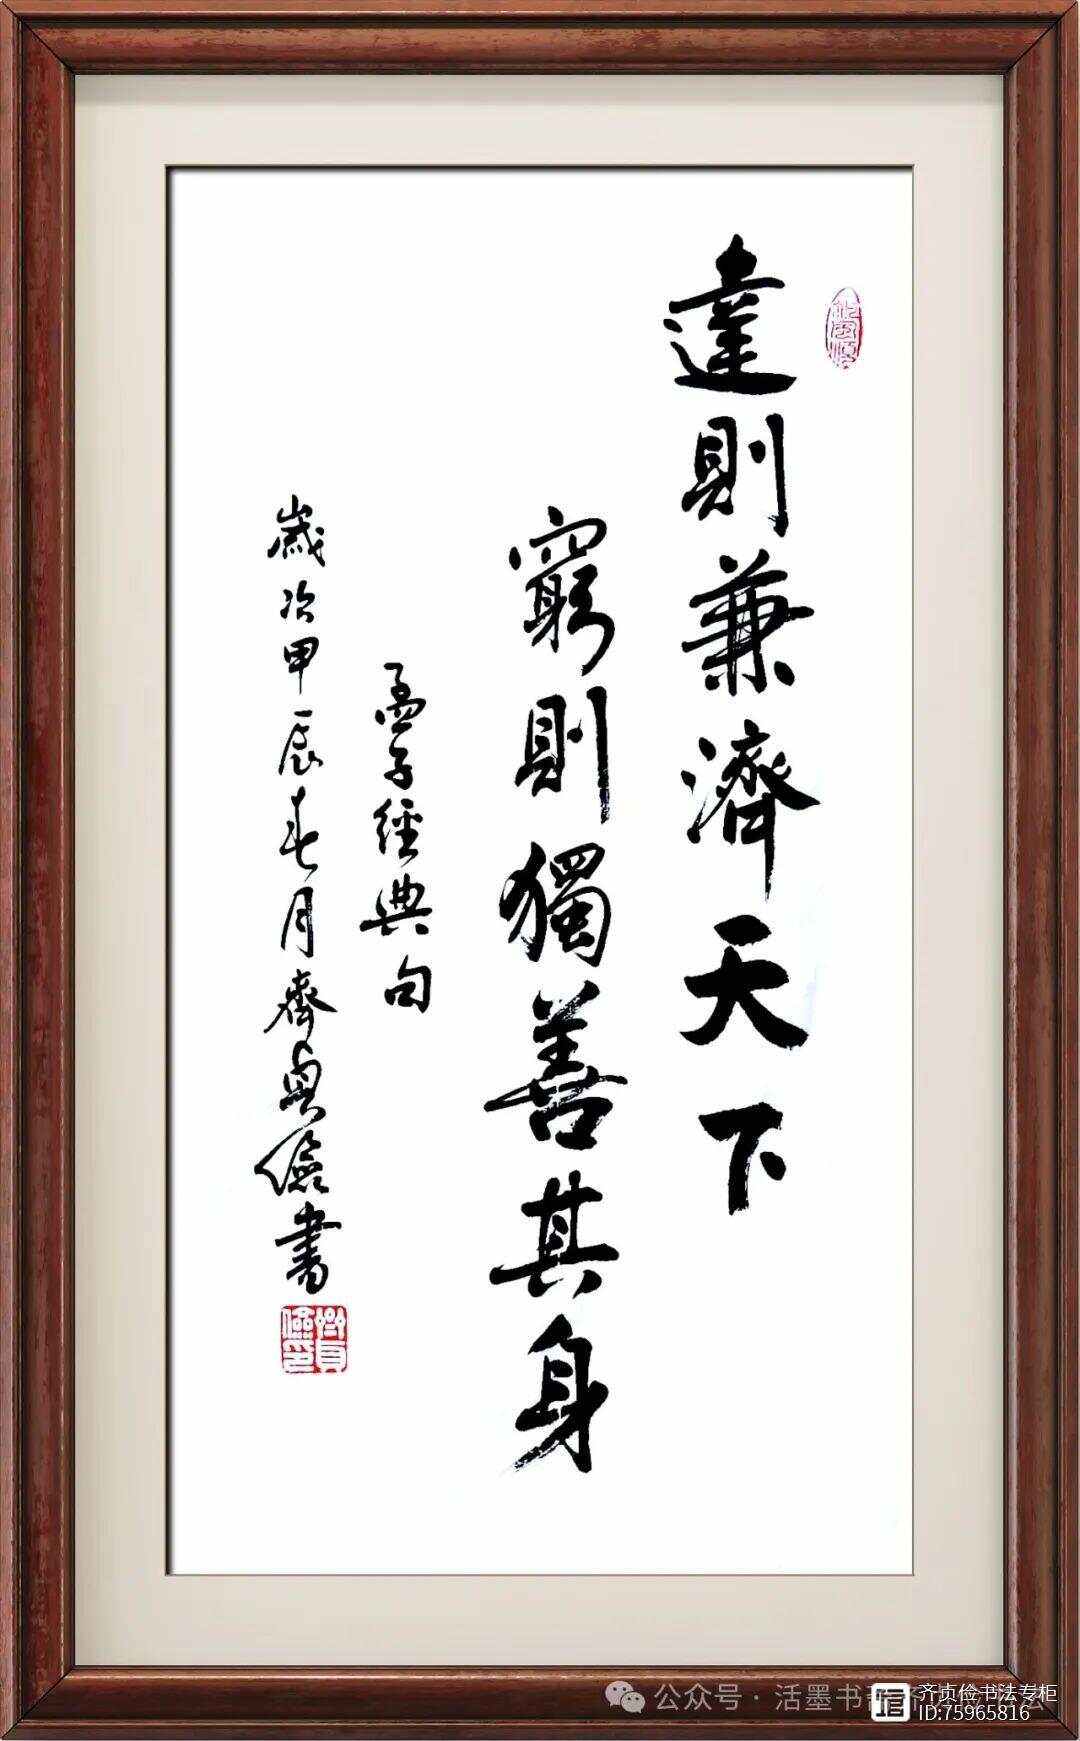 達則兼濟天下
窮則獨善其身
孟子經典句
歲次甲辰春月齊貞儉書
公众号·活墨书
齐贞俭书法专柜
ID:75965816